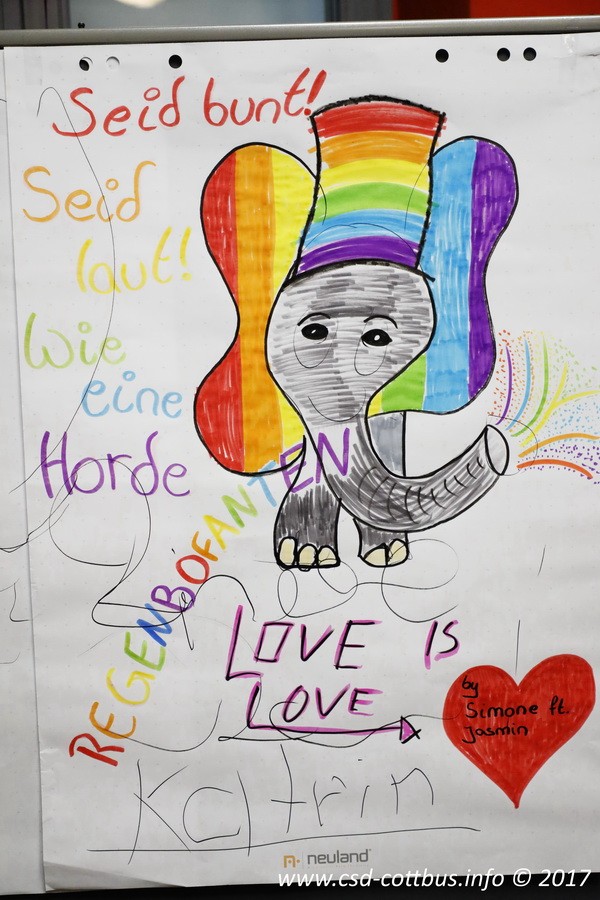 Seid bunt!
Seid
laut!
Wie
eine
Horde
REGENBOFANTEN
LOVE IS
LOVE
by
Simone ft.
Jasmin
Katrin
neuland
www.csd-cottbus.info © 2017